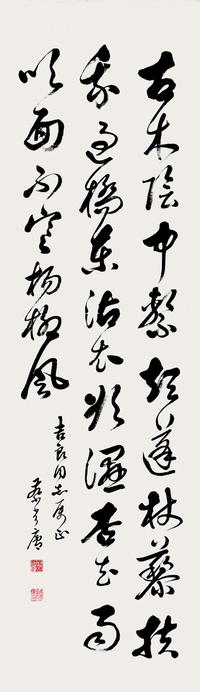 古木陰中繫短蓬杖藜扶
我過橋東沾衣欲濕杏花雨
吹面不寒楊柳風
吉良同志属正